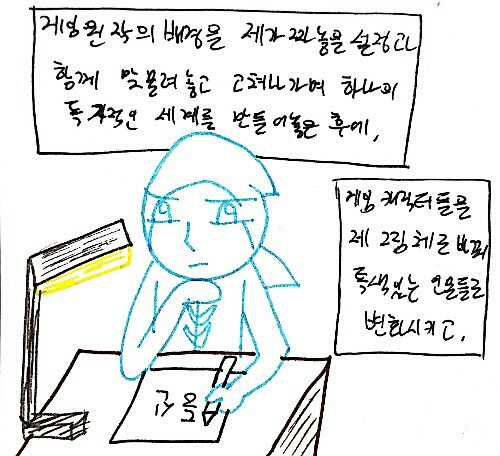 게임원작의 배경을 제가 짜놓은 설정과
함께 맞물려놓고 고쳐나가며 하나의
독자적인 세계를 만들어놓은 후에,
게임 캐릭터들을
제 그림체로 바꿔
특색있는 인물들로
변화시키고,
원고